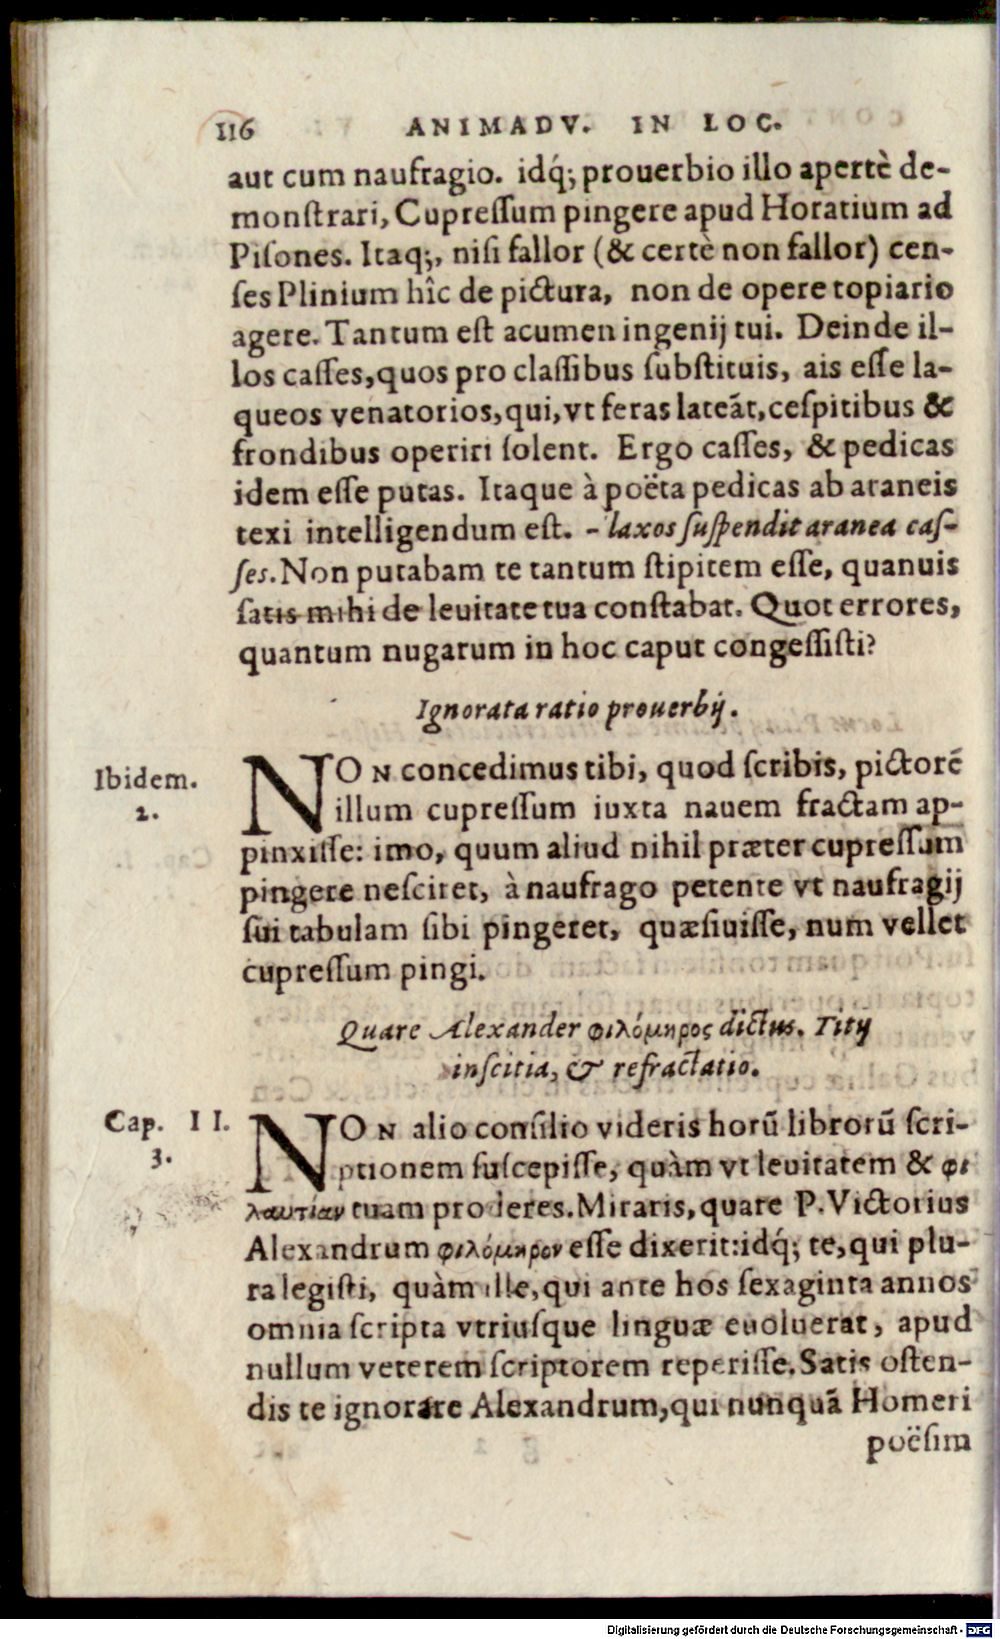 116 ANIMADV. IN LOC.
aut cum naufragio. idq́; prouerbio illo apertè de-
monſtrari, Cupreſſum pingere apud Horatium ad
Piſones. Itaq;, niſi fallor (& certè non fallor) cen-
ſes Plinium hîc de pictura, non de opere topiario
agere. Tantum eſt acumen ingenij tui. Deinde il-
los caſſes, quos pro claſſibus ſubſtituis, ais eſſe la-
queos venatorios, qui, vt feras lateāt, ceſpitibus &
frondibus operiri ſolent. Ergo caſſes, & pedicas
idem eſſe putas. Itaque à poëta pedicas ab araneis
texi intelligendum eſt. - laxos ſuſpendit aranea caſ-
ſes. Non putabam te tantum ſtipitem eſſe, quanuis
ſatis mihi de leuitate tua conſtabat. Quot errores,
quantum nugarum in hoc caput congeſſiſti?
Ignorata ratio prouerbij.
Ibidem.
2.
NON concedimus tibi, quod ſcribis, pictorē
illum cupreſſum iuxta nauem fractam ap-
pinxiſſe: imo, quum aliud nihil præter cupreſſum
pingere neſciret, à naufrago petente vt naufragij
ſui tabulam ſibi pingeret, quæſiuiſſe, num vellet
cupreſſum pingi.
Quare Alexander φιλόμηρος dictus. Titij
inſcitia, & refractatio.
Cap. II.
3.
NON alio conſilio videris horū librorū ſcri-
ptionem ſuſcepiſſe, quàm vt leuitatem & φι
λαυτίαν tuam proderes. Miraris, quare P. Victorius
Alexandrum φιλόμηρον eſſe dixerit: idq́; te, qui plu-
ra legiſti, quàm ille, qui ante hos ſexaginta annos
omnia ſcripta vtriuſque linguæ euoluerat, apud
nullum veterem ſcriptorem reperiſſe. Satis oſten-
dis te ignorare Alexandrum, qui nunquā Homeri
poëſim
Digitalisierung gefördert durch die Deutsche Forschungsgemeinschaft - DFG